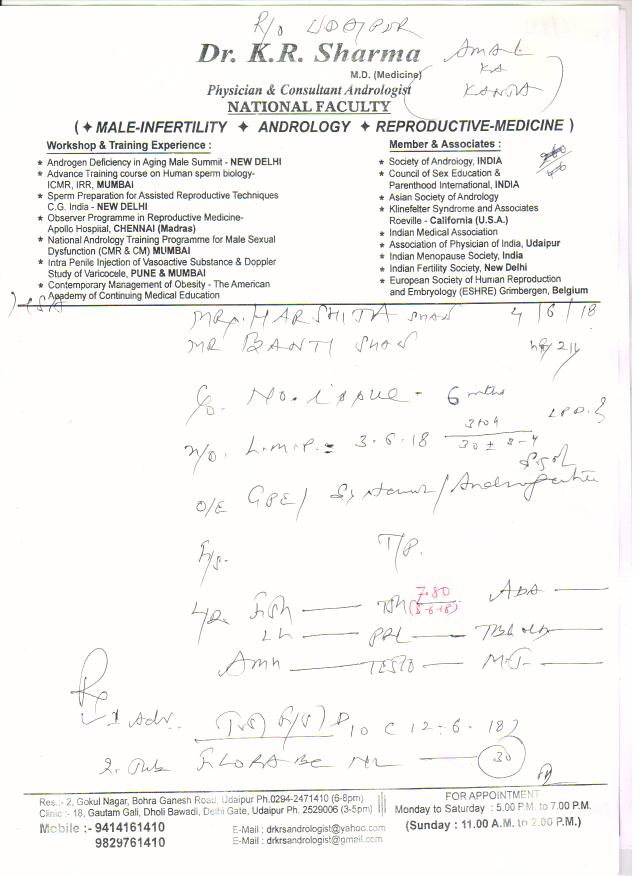 R/o UDAIPER
Dr. K.R. Sharma
M.D. (Medicine)
AMAL
KA
KANTA
Physician & Consultant Andrologist
NATIONAL FACULTY
( ✦ MALE-INFERTILITY ✦ ANDROLOGY ✦ REPRODUCTIVE-MEDICINE )
Workshop & Training Experience :
* Androgen Deficiency in Aging Male Summit - NEW DELHI
* Advance Training course on Human sperm biology-
ICMR, IRR, MUMBAI
* Sperm Preparation for Assisted Reproductive Techniques
C.G. India - NEW DELHI
* Observer Programme in Reproductive Medicine-
Apollo Hospital, CHENNAI (Madras)
* National Andrology Training Programme for Male Sexual
Dysfunction (CMR & CM) MUMBAI
* Intra Penile Injection of Vasoactive Substance & Doppler
Study of Varicocele, PUNE & MUMBAI
* Contemporary Management of Obesity - The American
Academy of Continuing Medical Education
Member & Associates :
* Society of Andrology, INDIA
* Council of Sex Education &
Parenthood International, INDIA
* Asian Society of Andrology
* Klinefelter Syndrome and Associates
Roeville - California (U.S.A.)
* Indian Medical Association
* Association of Physician of India, Udaipur
* Indian Menopause Society, India
* Indian Fertility Society, New Delhi
* European Society of Human Reproduction
and Embryology (ESHRE) Grimbergen, Belgium
MRS. HARSHITA 4/6/18
MR BANTI
C/o. No. issue - 6 mths
L.M.P. = 3.6.18 30 ±
O/E GPE/
T/P.
FSH — TSH 7.80 (5-6-18)
LH — PRL —
AMH — TESTO —
Rx
1 Adv. D10 (12-6-18)
2. 30
Res.:- 2, Gokul Nagar, Bohra Ganesh Road, Udaipur Ph.0294-2471410 (6-8pm)
Clinic :- 18, Gautam Gali, Dholi Bawadi, Delhi Gate, Udaipur Ph. 2529006 (3-5pm)
Mobile :- 9414161410
9829761410
E-Mail : drkrsandrologist@yahoo.com
E-Mail : drkrsandrologist@gmail.com
FOR APPOINTMENT
Monday to Saturday : 5.00 P.M. to 7.00 P.M.
(Sunday : 11.00 A.M. to 2.00 P.M.)